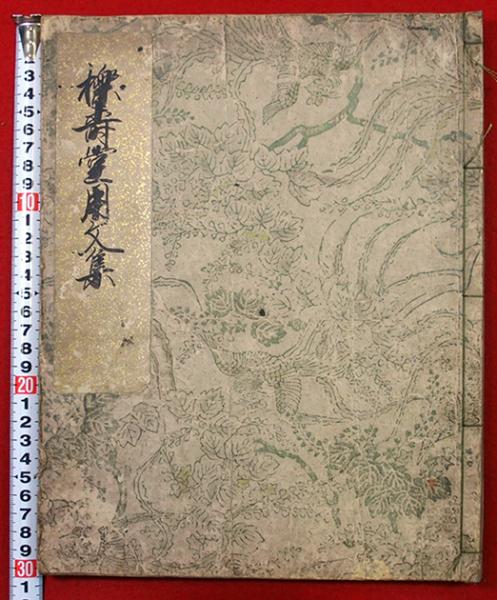 寿堂用文集
3
4
5
6
7
8
9
10
1
2
3
4
5
6
7
8
9
20
1
2
3
4
5
6
7
8
9
30
1